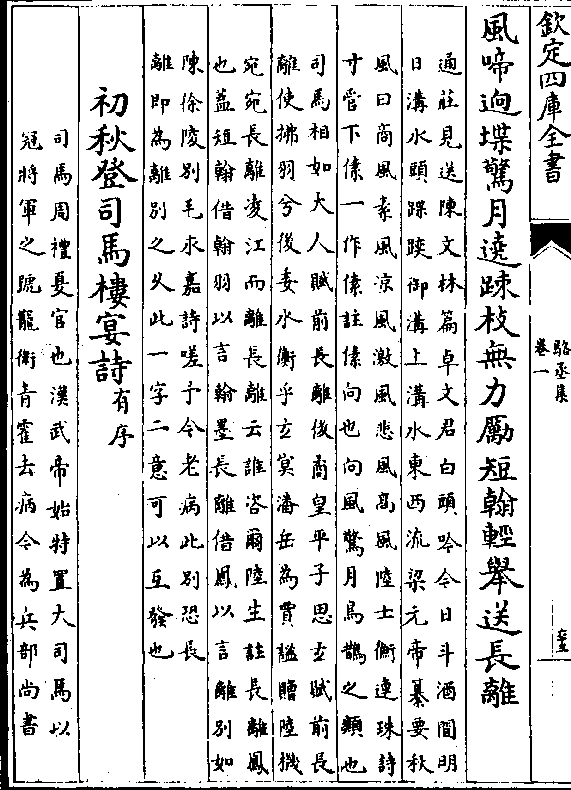 欽定四庫全書
駱丞集
卷一
風啼迥堞驚月遶踈枝無力勵短翰輕舉送長離
通莊見送陳文林篇卓文君白頭吟今日斗酒間明
日溝水頭踩踥御溝上溝水東西流梁元帝纂要秋
風曰商風素風涼風激風悲風高風陸士衡連珠詩
寸管下傃一作傃註傃向也向風驚月烏鵲之類也
司馬相如大人賦前長離後矞皇平子思玄賦前長
離使拂羽兮後委水衡乎玄冥潘岳為賈謐贈陸機
宛宛長離凌江而離長離云誰咨爾陸生註長離鳳
也蓋短翰借翰羽以言翰墨長離借鳳以言離別如
陳徐陵別毛永嘉詩嗟予今老病此別恐長
離即為離別之久此一字二意可以互發也
初秋登司馬樓宴詩有序
司馬周禮夏官也漢武帝始特置大司馬以
冠將軍之號龍衛青霍去病今為兵部尚書